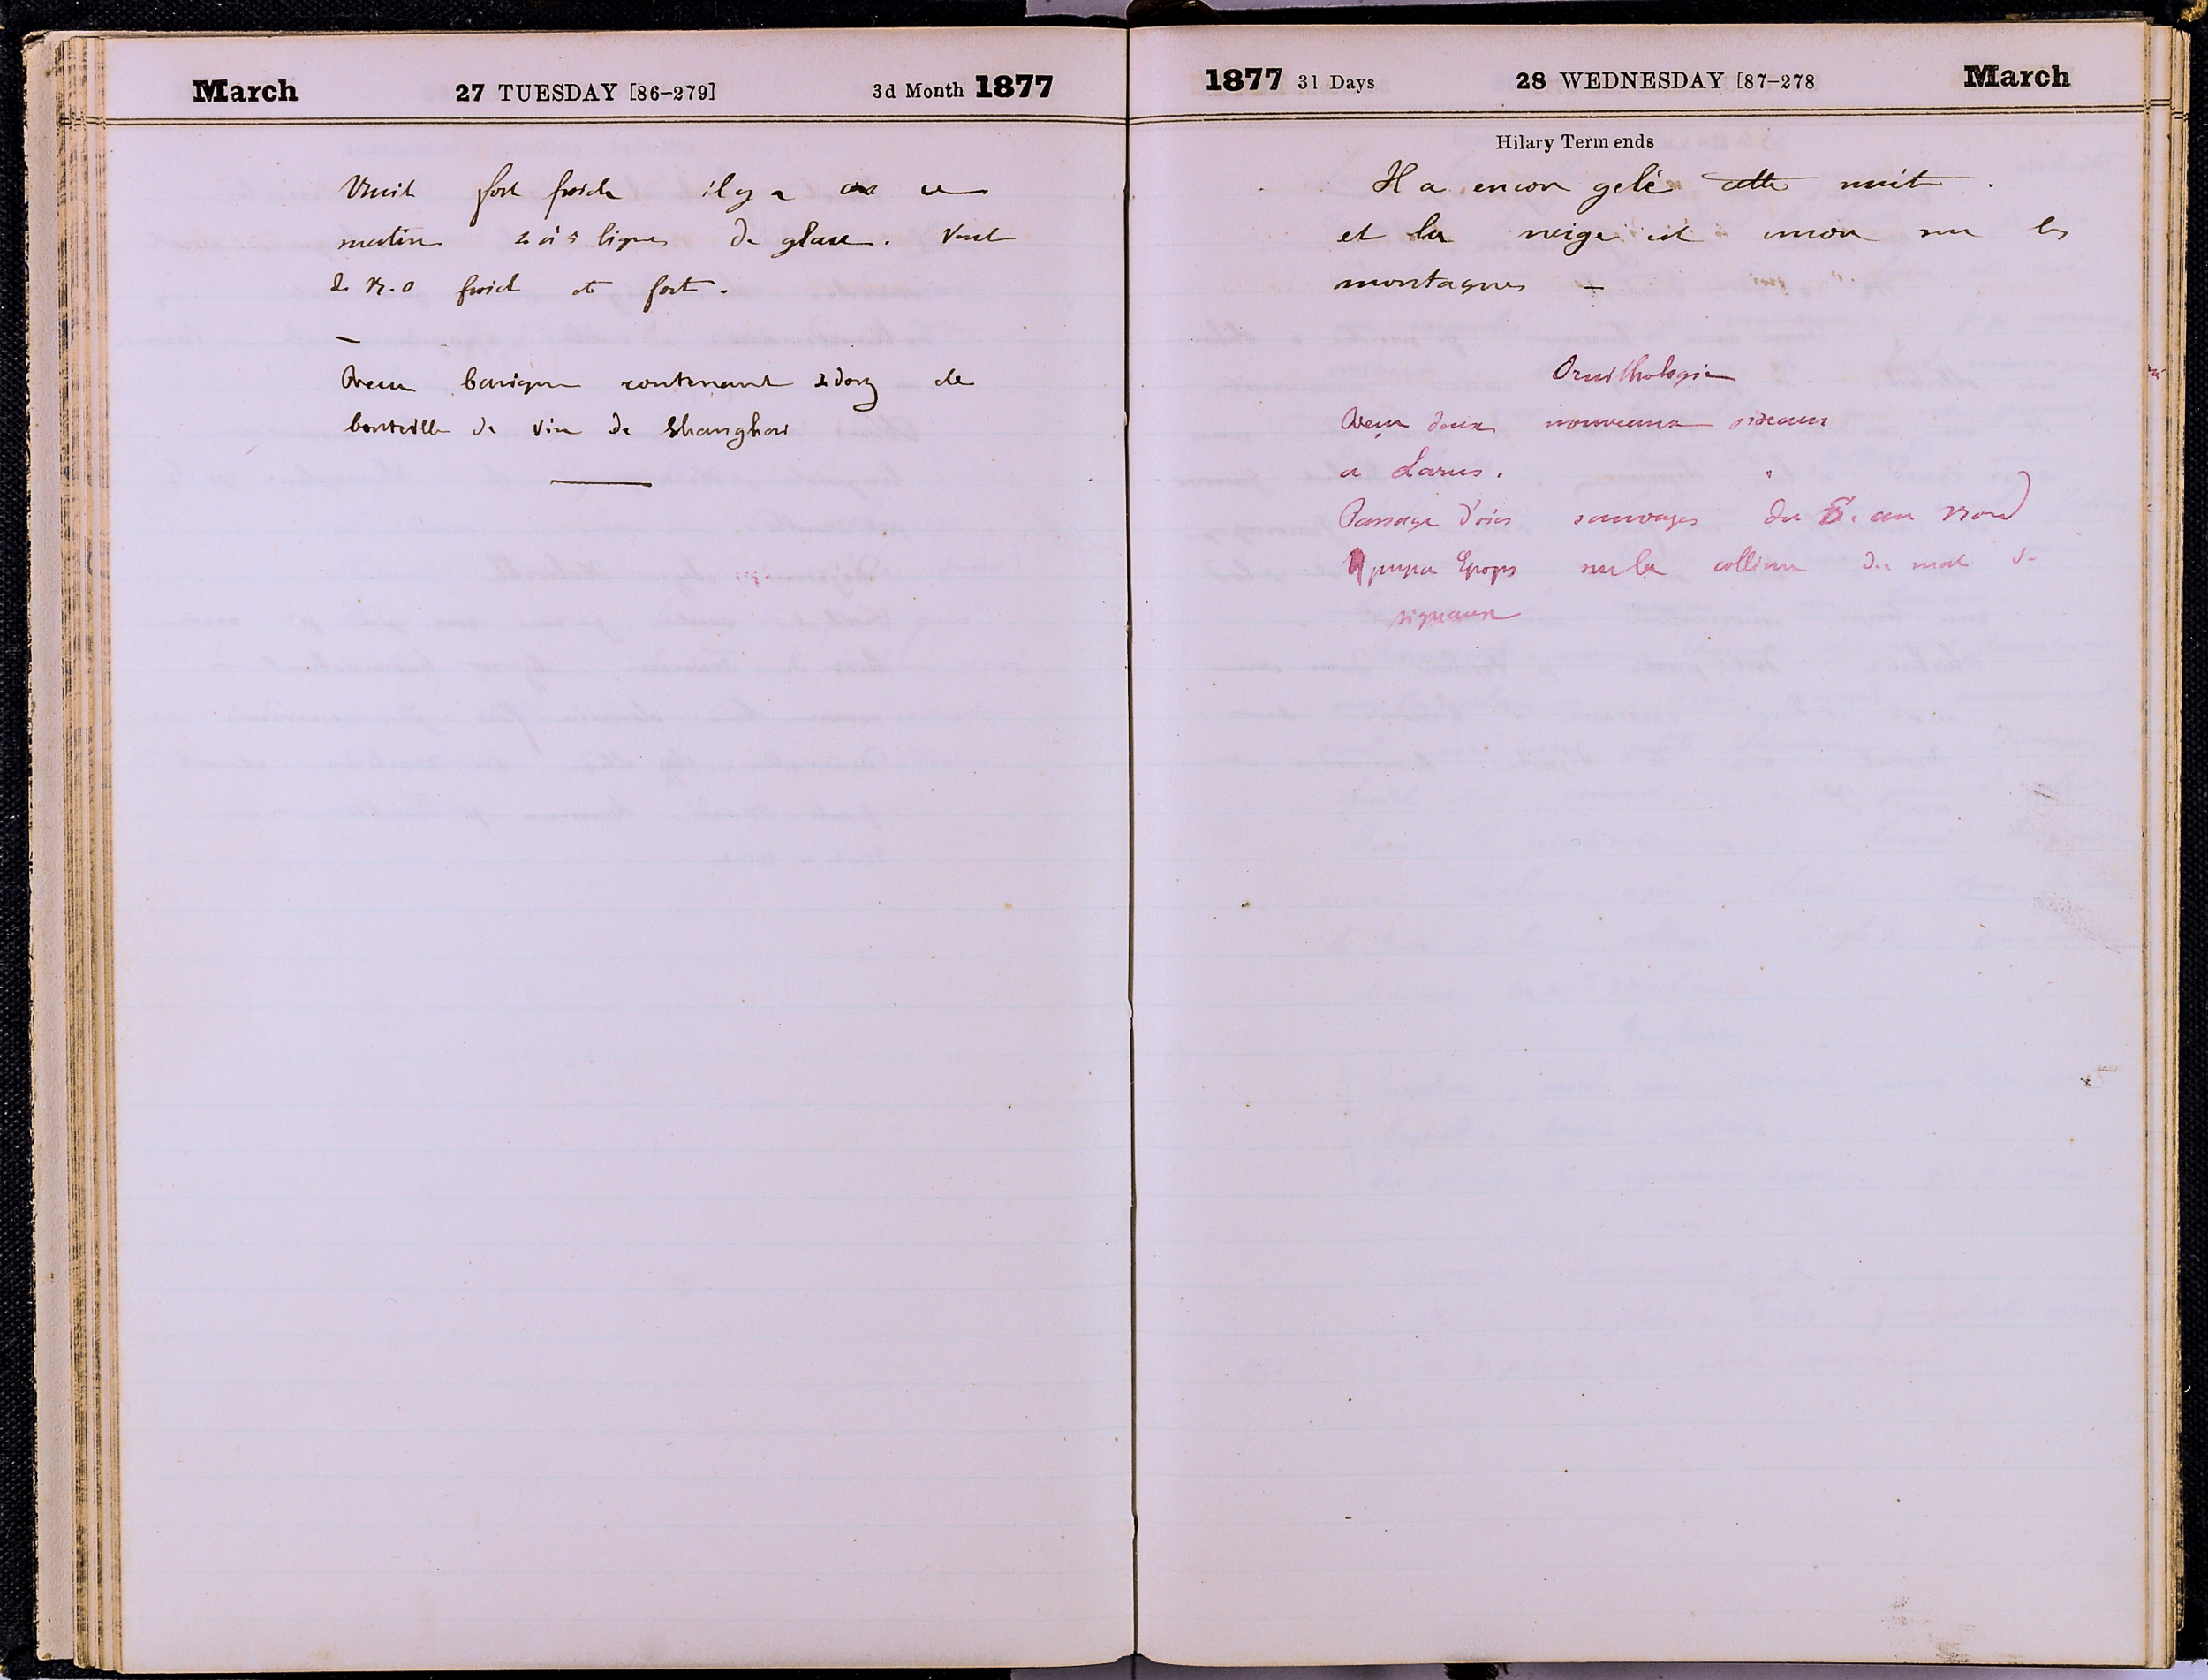 March 27 TUESDAY [86-279] 3d Month 1877
Nuit fort froide il y a eu ce
matin 2 à 3 lignes de glace. Vent
de N.O froid et fort.
—
Reçu barique contenant 2 douz de
bouteille de vin de Shanghai
1877 31 Days 28 WEDNESDAY [87-278 March
Hilary Term ends
Il a encore gelé cette nuit.
et la neige est encore sur les
montagnes —
Ornithologie
Reçu deux nouveaux oiseaux
a Larus.
Passage d'oies sauvages du S. au Nord
Upupa Epops sur la colline du mat d-
signaux